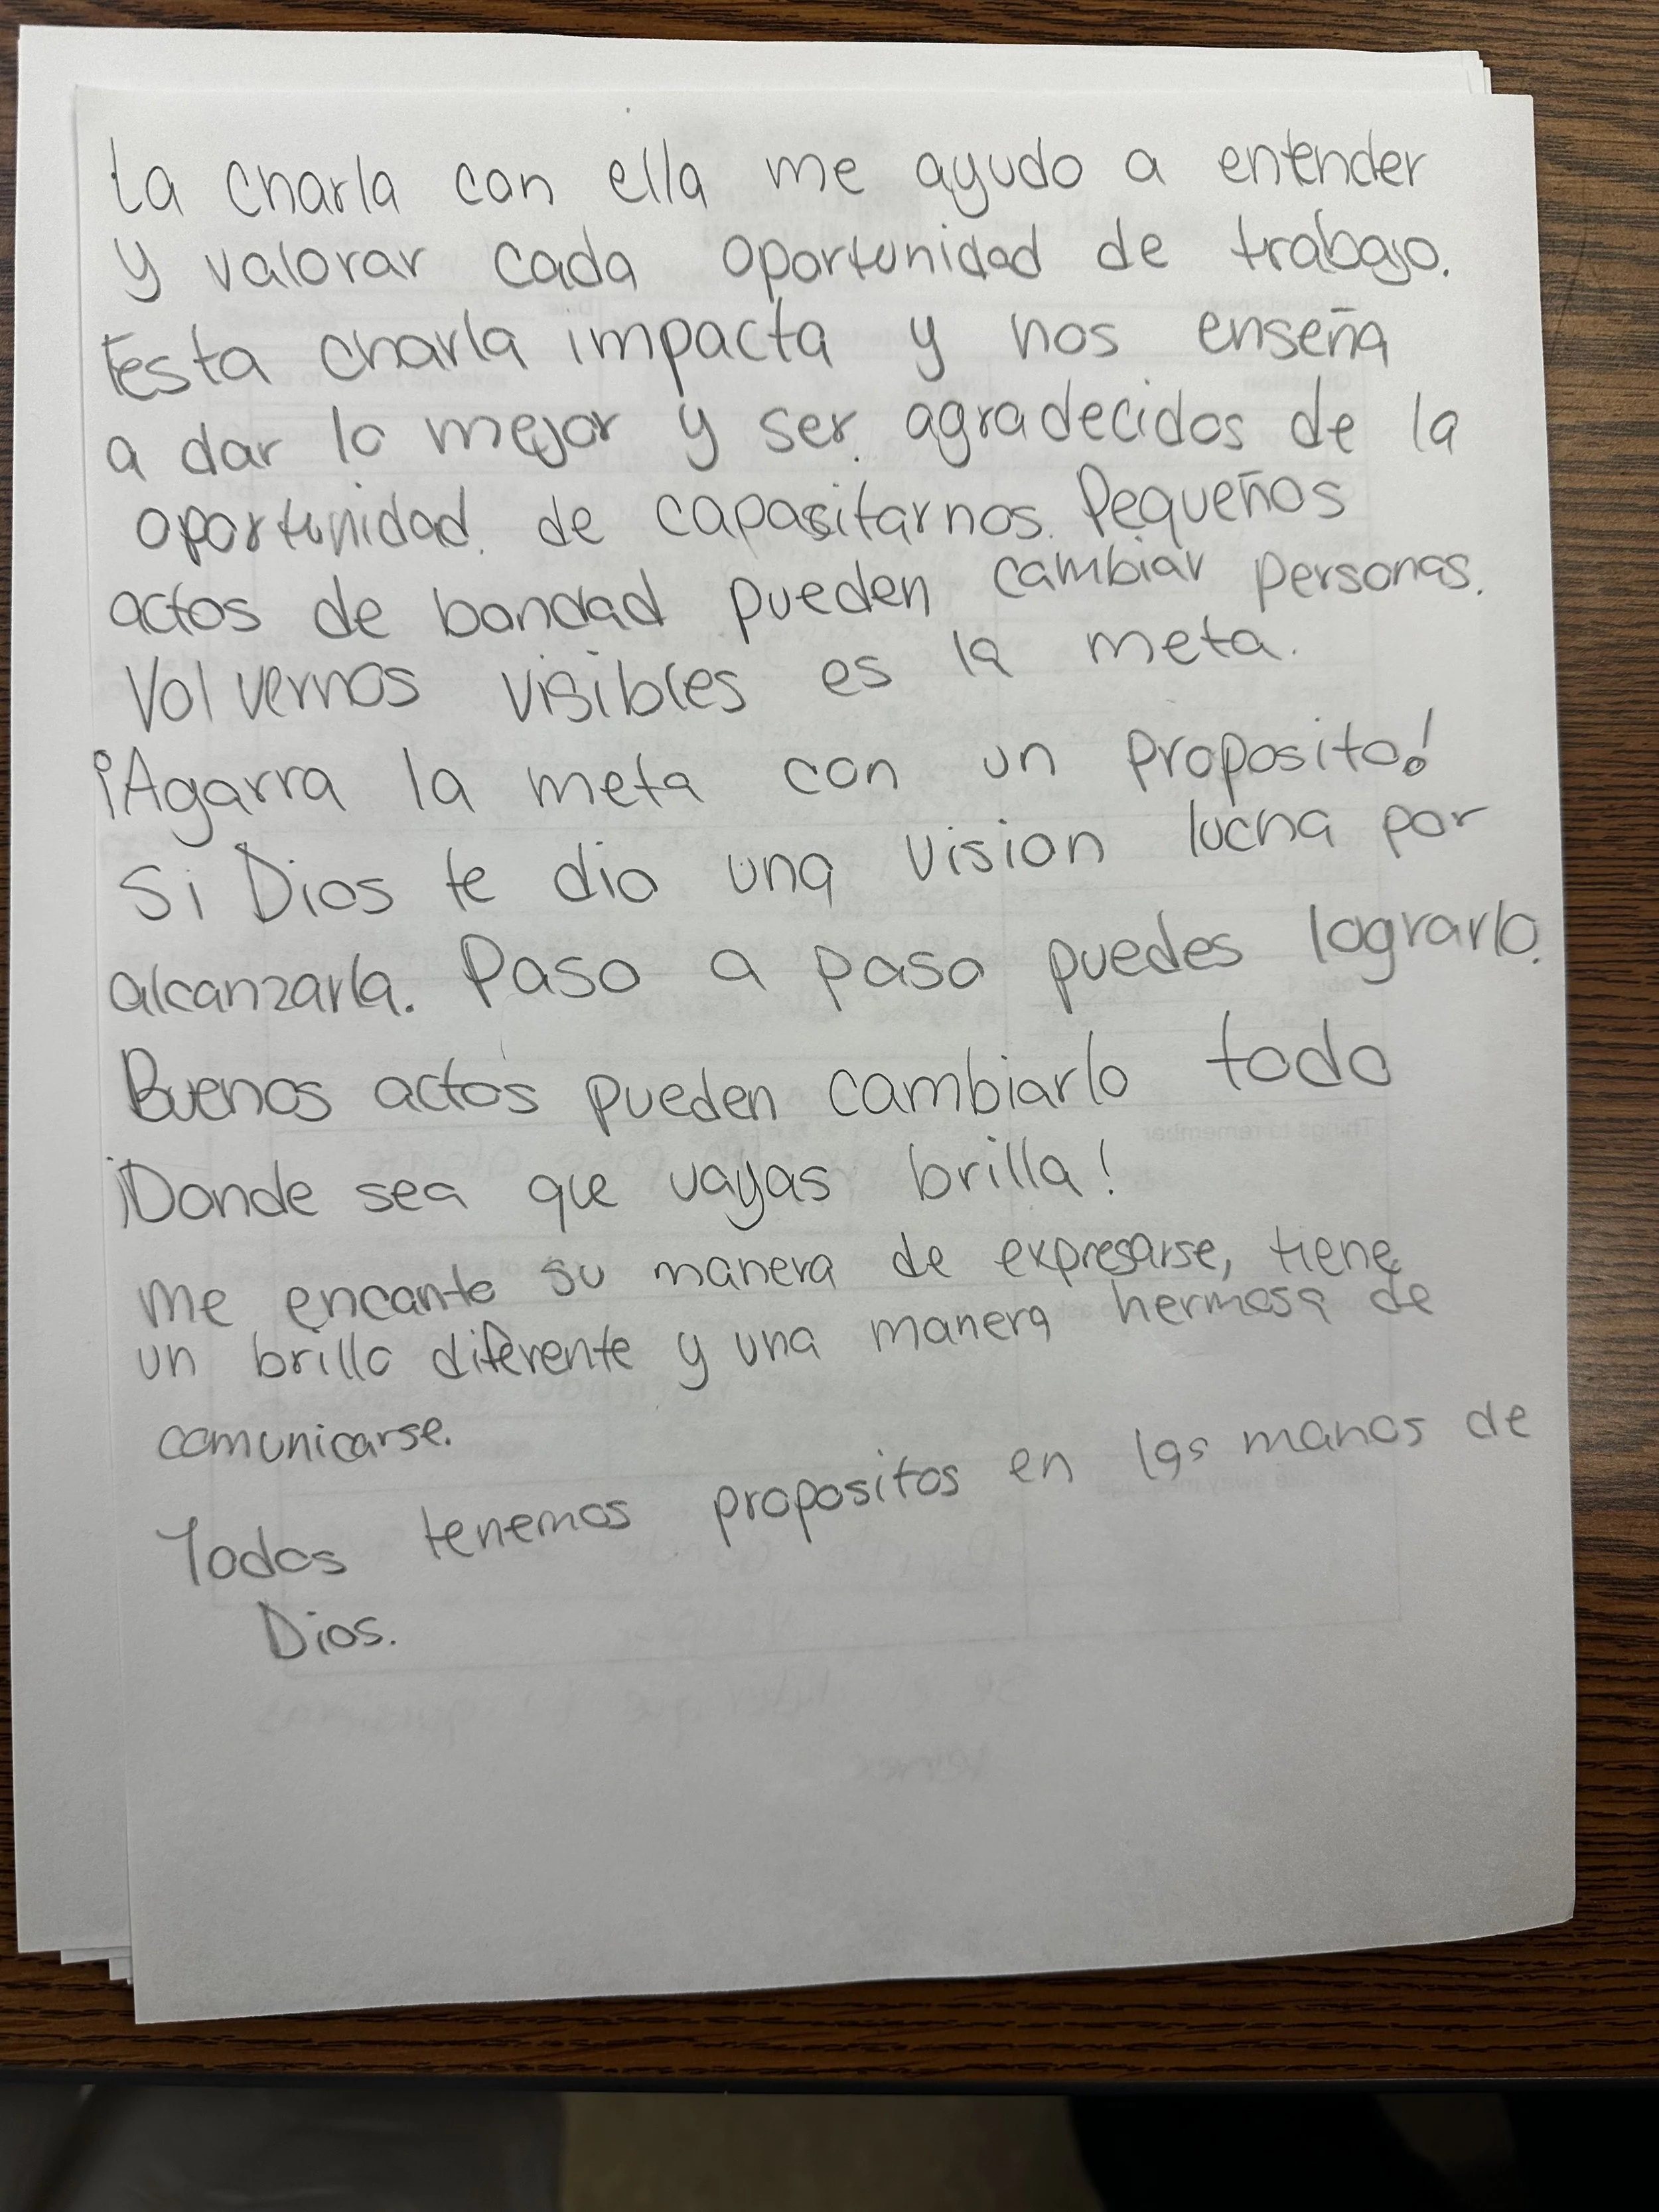 La charla con ella me ayudo a entender
y valorar cada oportunidad de trabajo.
Esta charla impacta y nos enseña
a dar lo mejor y ser agradecidos de la
oportunidad de capacitarnos. Pequeños
actos de bondad pueden cambiar personas.
Volvernos visibles es la meta.
¡Agarra la meta con un proposito!
Si Dios te dio una vision lucha por
alcanzarla. Paso a paso puedes lograrlo.
Buenos actos pueden cambiarlo todo
¡Donde sea que vayas brilla!
Me encanto su manera de expresarse, tiene
un brillo diferente y una manera hermosa de
comunicarse.
Todos tenemos propositos en las manos de
Dios.
Things to remember